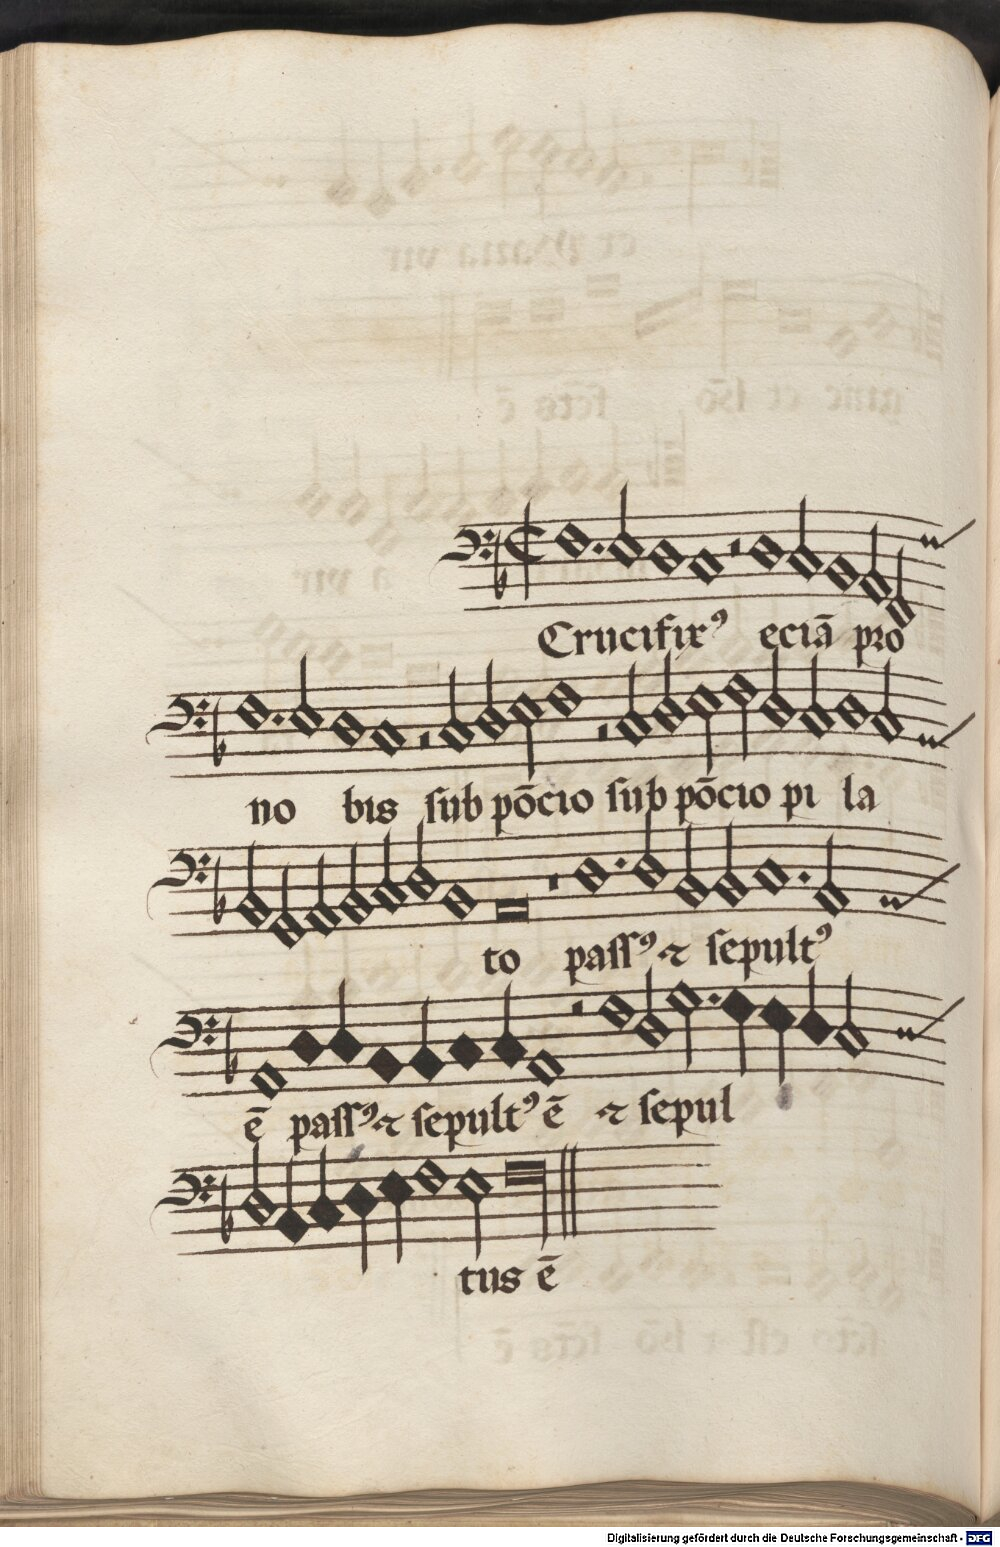 Crucifixꝰ eciā pro
no bis sub pōcio sub pōcio pi la
to passꝰ ⁊ sepultꝰ
ē passꝰ ⁊ sepultꝰ ē ⁊ sepul
tus ē
Digitalisierung gefördert durch die Deutsche Forschungsgemeinschaft - DFG